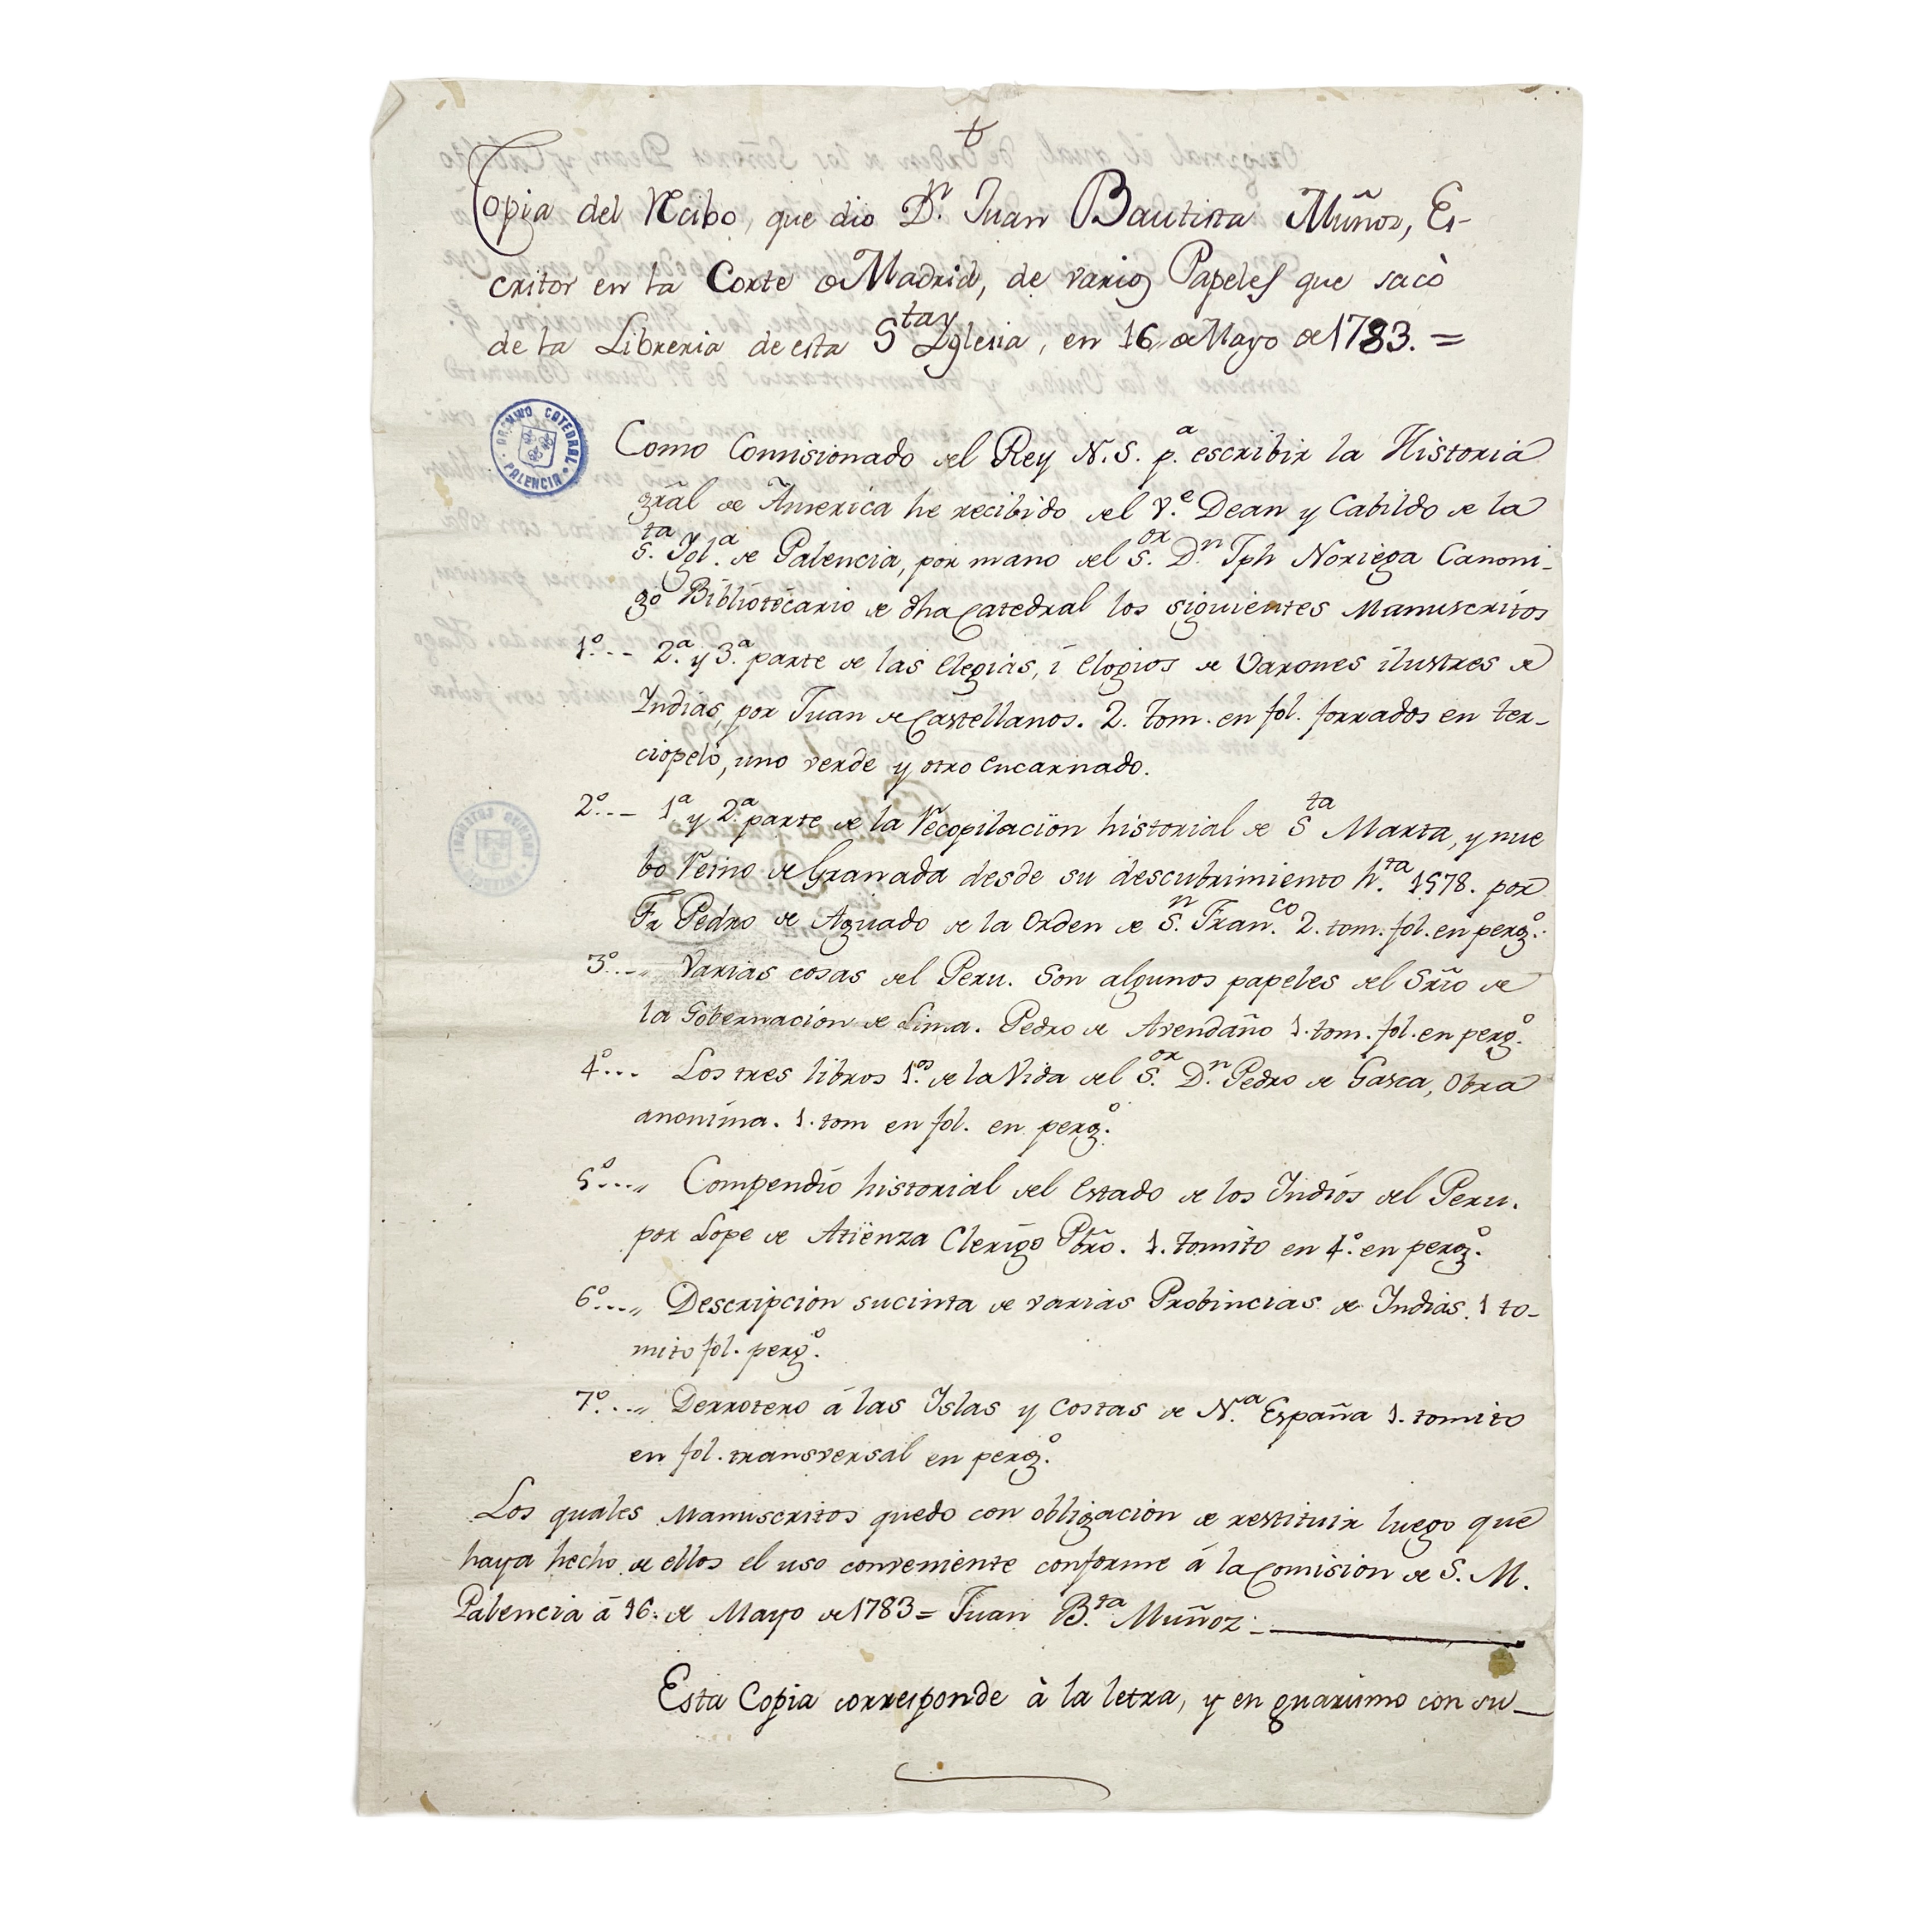 Copia del Recibo, que dio Dn. Juan Bautista Muñoz, Es-
critor en la Corte de Madrid, de varios Papeles que sacò
de la Libreria de esta Sta Yglesia, en 16 de Mayo de 1783. =
ARCHIVO CATEDRAL · PALENCIA ·
Como Comisionado del Rey N. S. p.a escribir la Historia
grãl de America he recibido del V.e Dean y Cabildo de la
S.ta Ygl.a de Palencia, por mano del S.or D.n Jph Noriega Canoni-
go Bibliotecario de dha Catedral los siguientes Manuscritos
1º.-- 2.a y 3.a parte de las Elegias, i Elogios de Varones ilustres de
Indias, por Juan de Castellanos. 2. tom. en fol. forrados en ter-
ciopelo, uno verde y otro encarnado.
2º..- 1.a y 2.a parte de la Recopilacion historial de Sta Marta, y nue
bo Reino de Granada desde su descubrimiento h.ta 1578. por
Fr Pedro de Aguado de la Orden de S.n Fran.co 2. tom. fol. en perg.º
3º.-„ Varias cosas del Peru. Son algunos papeles del Srio de
la Gobernación de Lima. Pedro de Avendaño 1. tom. fol. en perg.º
4º... Los tres libros 1.os de la Vida del S.or D.n Pedro de Gasca, Obra
anonima. 1. tom en fol. en perg.º
5º...„ Compendio historial del Estado de los Indios del Peru.
por Lope de Atienza Clerigo Pbrõ. 1. tomito en 4.º en perg.º
6º...„ Descripcion sucinta de varias Probincias de Indias. 1 to-
mito fol. perg.º
7º...„ Derrotero á las Islas y Costas de N.a España 1. tomito
en fol. transversal en perg.º
Los quales Manuscritos quedo con obligacion de restituir luego que
haya hecho de ellos el uso conveniente conforme á la Comision de S. M.
Palencia á 16. de Mayo de 1783 = Juan B.ta Muñoz
Esta Copia corresponde à la letra, y en guarismo con su